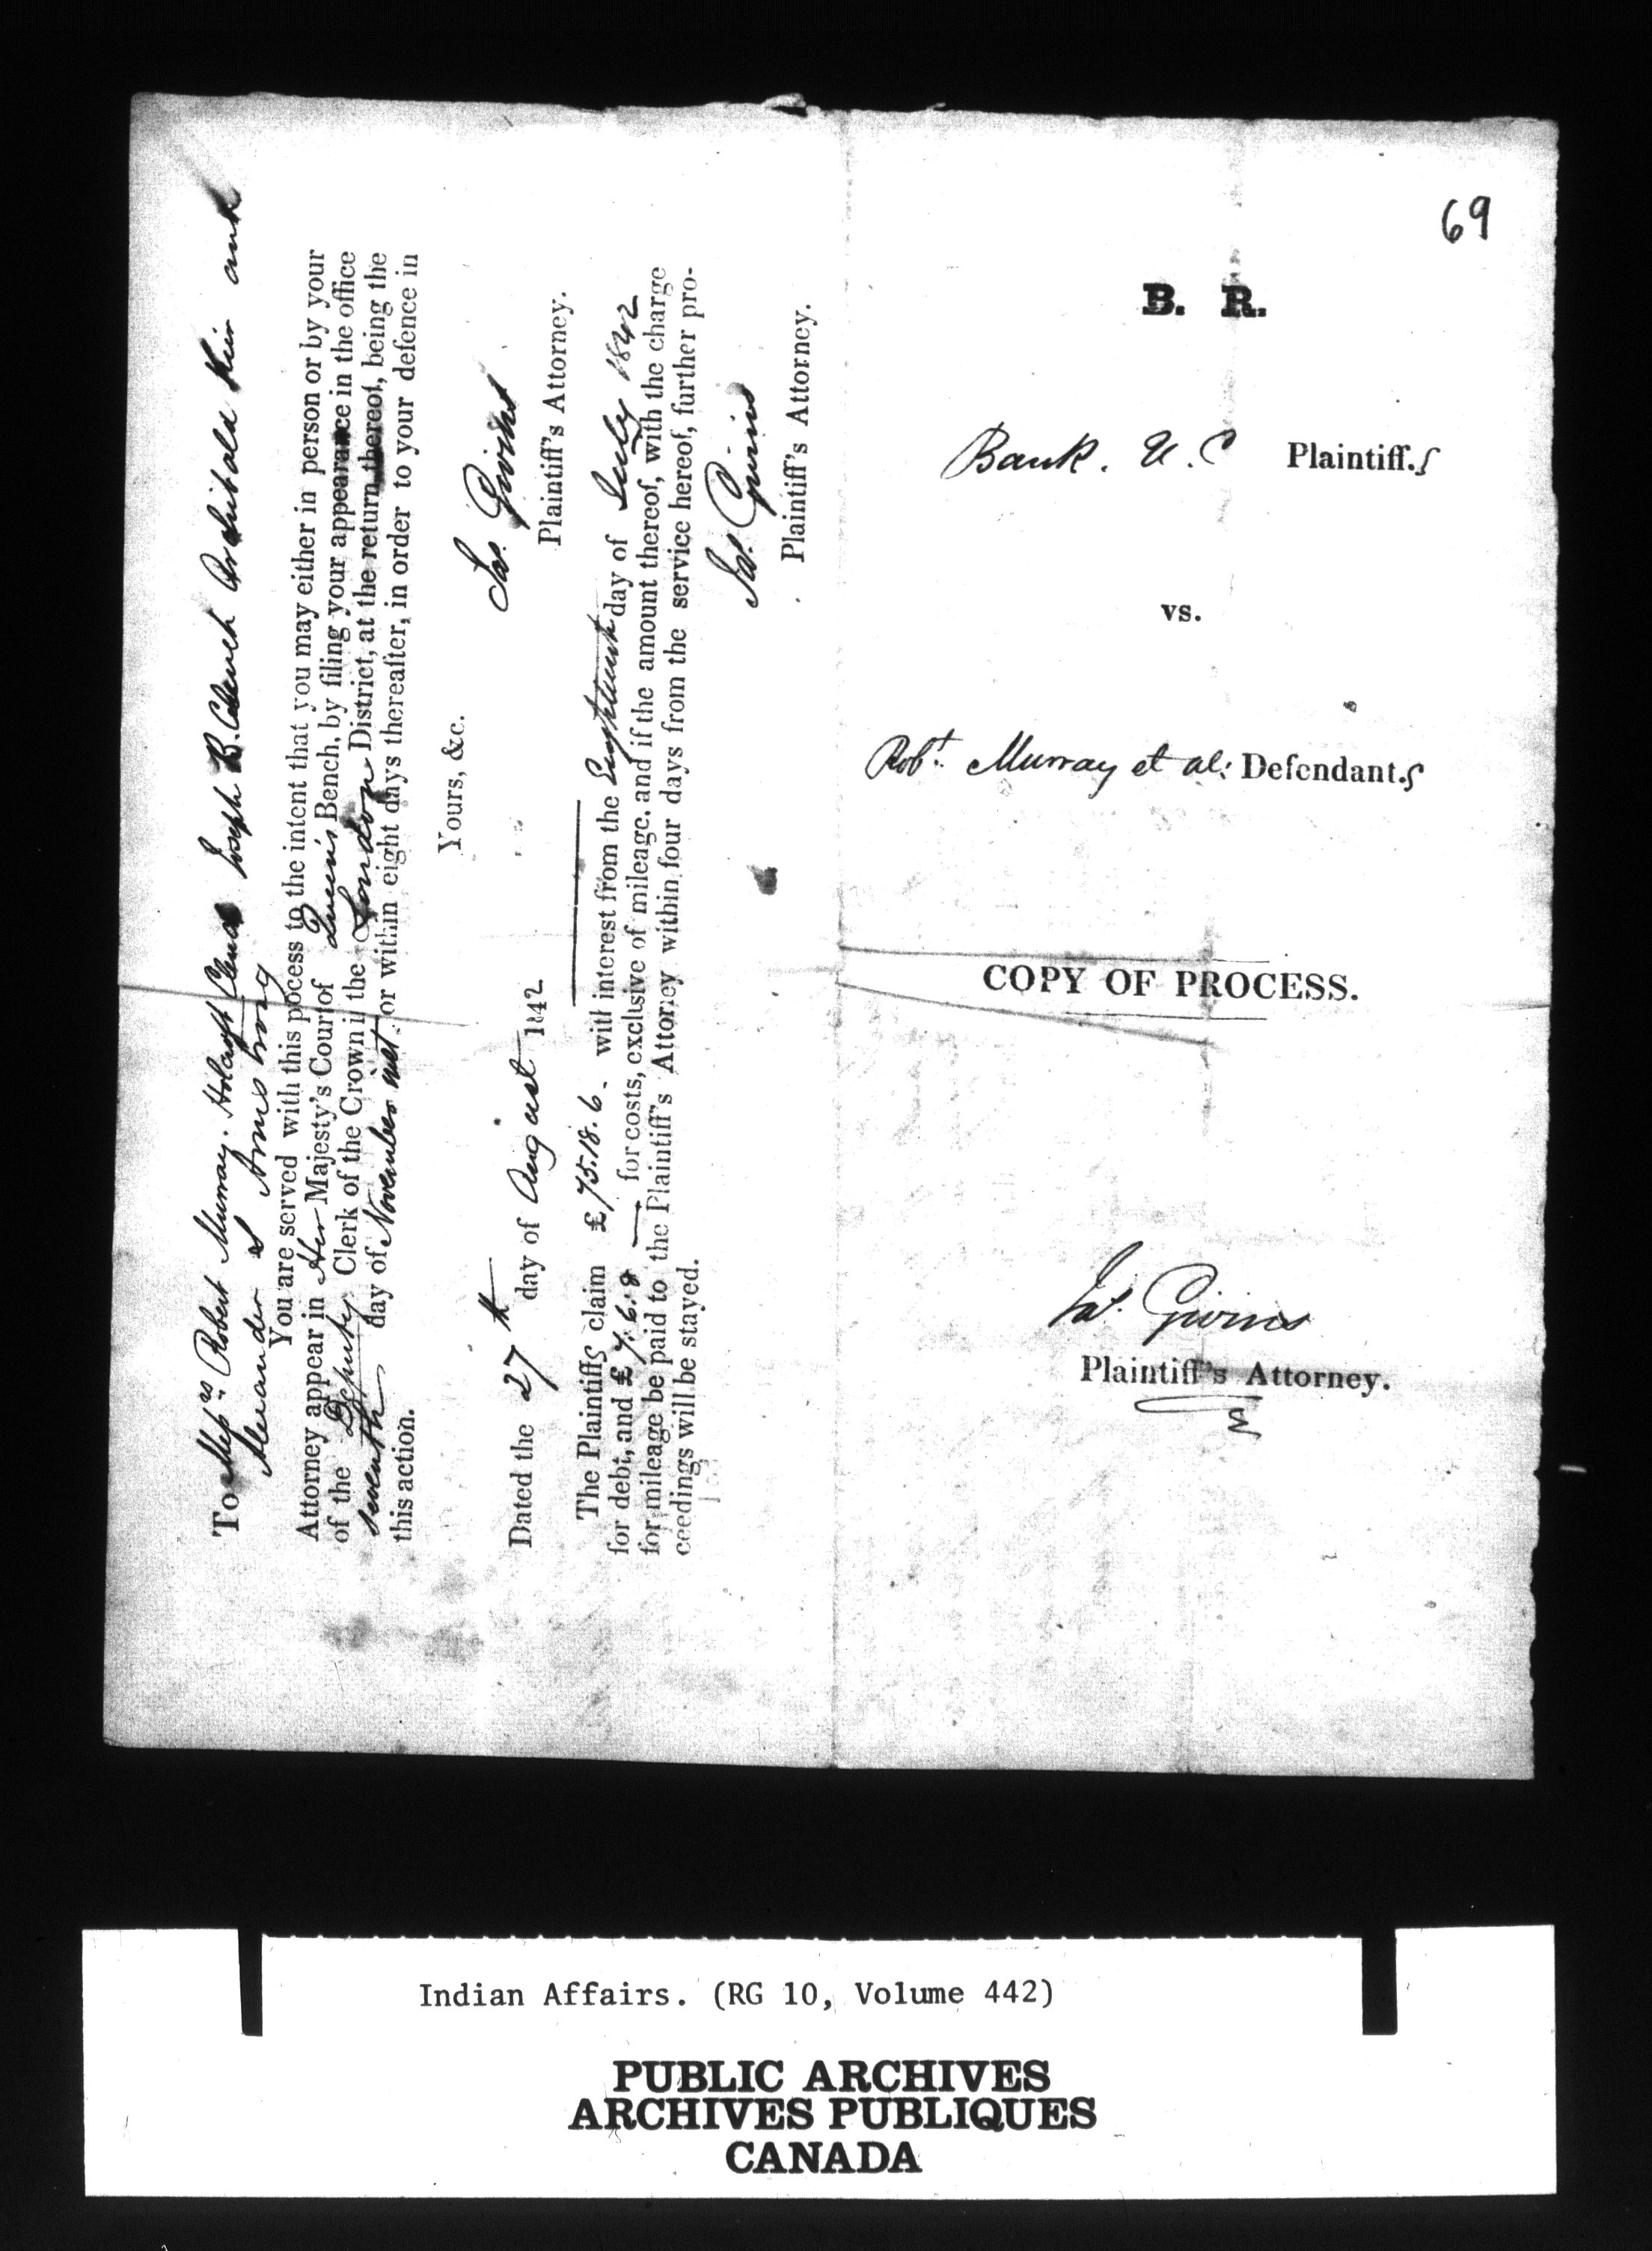 To Messrs Robert Murray. Holcroft Clench Joseph B. Clench Archibald Kerr and
Alexander S Armstrong
You are served with this pocess to the intent that you may either in person or by your
Attorney appear in Her Majesty's Court of Queen's Bench, by filing your appearance in the office
of the Deputy Clerk of the Crown in the London District, at the return thereof, being the
seventh day of November next, or within eight days thereafter, in order to your defence in
this action.
Yours, &c.
Jas. Givins
Plaintiff's Attorney.
Dated the 27th day of August 1842
The Plaintiffs claim £75.18.6. with interest from the day of July 1842
for debt, and £7.6.8 for costs, exclusive of mileage, and if the amount thereof, with the charge
for mileage be paid to the Plaintiff's Attorney within four days from the service hereof, further pro-
ceedings will be stayed.
Jas. Givins
Plaintiff's Attorney.
69
B. R.
Bank. U. C Plaintiff.s
vs.
Robt. Murray et al: Defendant.s
COPY OF PROCESS.
Jas. Givins
Plaintiff's Attorney.
Indian Affairs. (RG 10, Volume 442)
PUBLIC ARCHIVES
ARCHIVES PUBLIQUES
CANADA